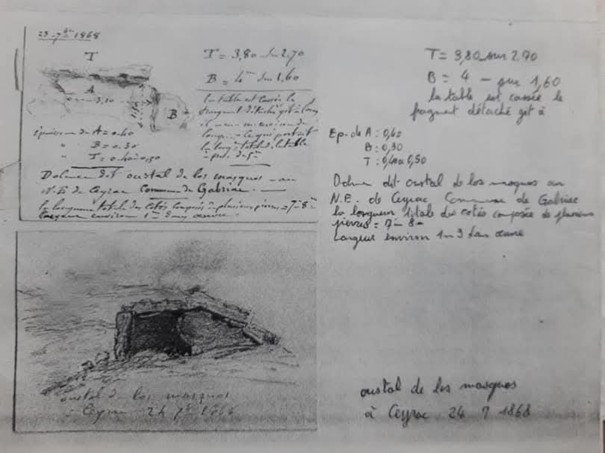 23 - 7bre 1868
T
A
3,10
B
T = 3,80 sur 2.70
B = 4m sur 1,60
la table est cassée le
fragment détaché gît à
épaisseur de A = 0.60
" B = 0.30
" T = 0.40 à 0,50
Dolmen dit oustal de los masques au
N.E de Ceyrac Commune de Gabriac.
la longueur totale des cotés composés de plusieurs pierres = 7 - 8m
Largeur environ 1m
oustal de los masques
à Ceyrac 24 7bre 1868
T = 3,80 sur 2.70
B = 4 - sur 1,60
la table est cassée le
fragment détaché gît à
Ep. de A : 0,60
B : 0,30
T : 0,40 à 0,50
Dolmen dit oustal de los masques au
N.E. de Ceyrac Commune de Gabriac
la longueur totale des cotés composée de plusieurs
pierres = 7m 8m
Largeur environ 1m 3 dans œuvre
oustal de los masques
à Ceyrac 24 7 1868